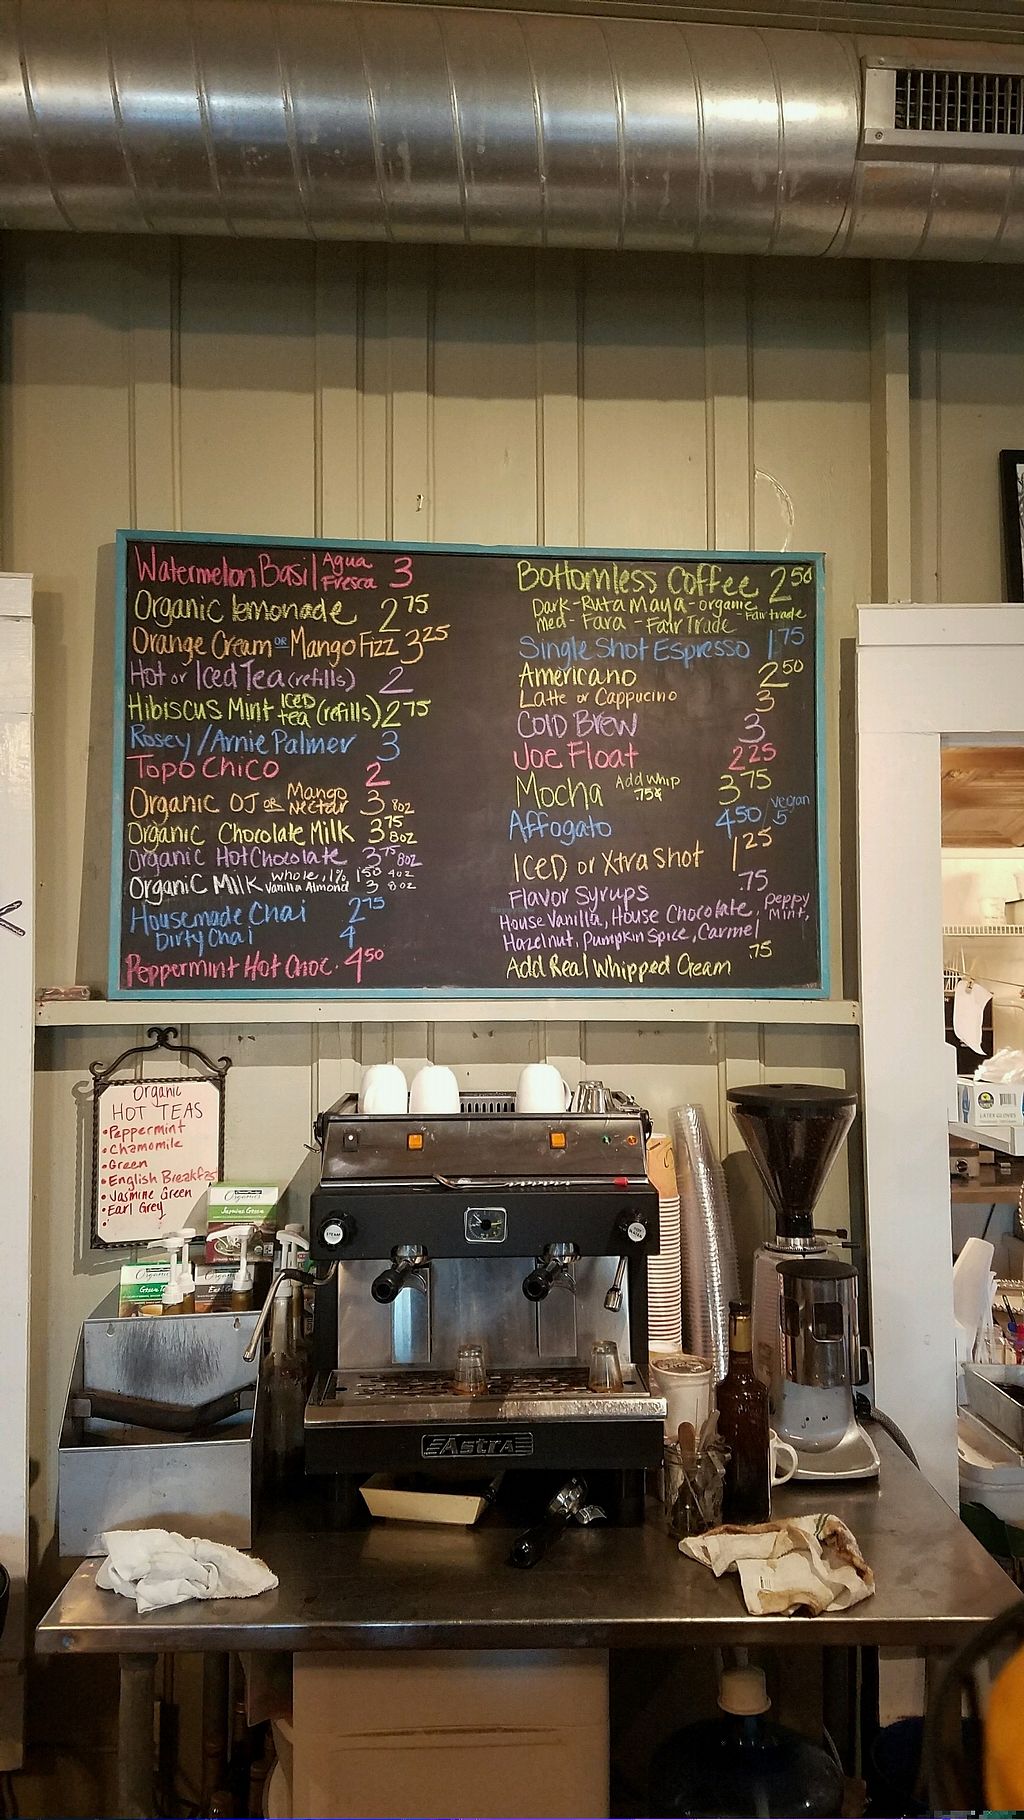 Watermelon Basil Agua Fresca 3
Organic lemonade 2 75
Orange Cream OR Mango Fizz 3 25
Hot or Iced Tea (refills) 2
Hibiscus Mint ICED tea (refills) 2 75
Rosey/Arnie Palmer 3
Topo Chico 2
Organic OJ OR Mango Nectar 3 8oz
Organic Chocolate Milk 3 75 8oz
Organic Hot Chocolate 3 75 8oz
Organic Milk whole, 1% 1 50 4oz
Vanilla Almond 3 8oz
Housemade Chai 2 75
Dirty Chai 4
Peppermint Hot Choc. 4 50
Bottomless Coffee 2 50
Dark - Ruta Maya - organic - Fair trade
med - Fara - Fair Trade
Single Shot Espresso 1 75
Americano 2 50
Latte or Cappucino 3
Cold Brew 3
Joe Float 2 25
Mocha Add whip .75¢ 3 75
Affogato 4 50 / vegan 5
ICED or Xtra Shot 1 25
Flavor Syrups .75
House Vanilla, House Chocolate, Peppy Mint,
Hazelnut, Pumpkin Spice, Carmel
Add Real Whipped Cream .75
Organic
HOT TEAS
• Peppermint
• Chamomile
• Green
• English Breakfast
• Jasmine Green
• Earl Grey
Organics
Jasmine Green
STEAM
Astra
LATEX GLOVES